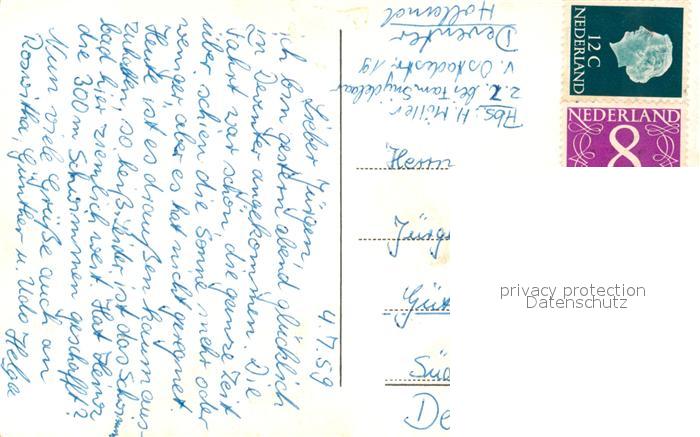 4.7.59
Lieber Jürgen
ich bin gestern abend glücklich
in Deventer angekommen. Die
Fahrt war schön, die ganze Zeit
über schien die Sonne mehr oder
weniger, aber es hat nicht geregnet.
Heute ist es draußen kaum aus-
zuhalten, so heiß. Leider ist das Schwimm
bad hier ziemlich weit. Hat Heinz
die 300 m Schwimmen geschafft?
Nun viele Grüße auch an
Roswitha, Günther u. Udo Helga
Abs: H. Müller
z.Z. bei Fam.
v. Ostadestr. 19
Deventer
Holland
Herrn
Jürg
Güt
Süd
De
12 C
NEDERLAND
NEDERLAND
8
privacy protection
Datenschutz